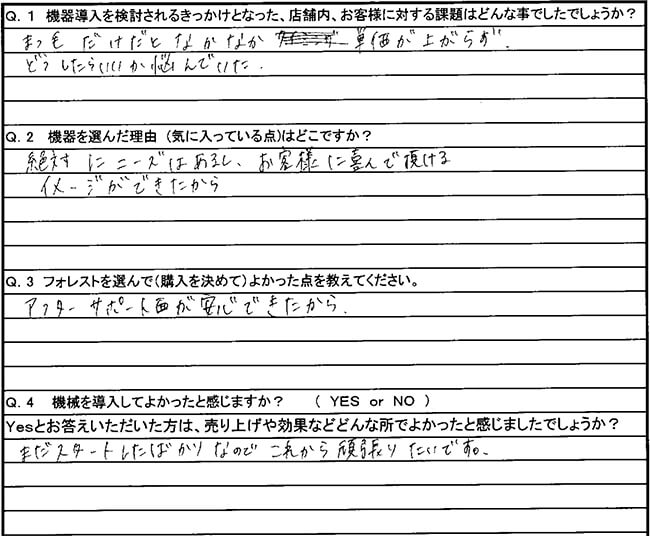 Q. 1 機器導入を検討されるきっかけとなった、店舗内、お客様に対する課題はどんな事でしたでしょうか?
まつ毛 だけだと なかなか 単価が上がらず、
どうしたらいいか悩んでいた.
Q. 2 機器を選んだ理由 (気に入っている点)はどこですか?
絶対 に ニーズはあるし、お客様に喜んで頂ける
イメージができたから
Q. 3 フォレストを選んで(購入を決めて)よかった点を教えてください。
アフターサポート面が安心できたから.
Q. 4 機械を導入してよかったと感じますか? ( YES or NO )
Yesとお答えいただいた方は、売り上げや効果などどんな所でよかったと感じましたでしょうか?
まだスタートしたばかりなので これから頑張りたいです。